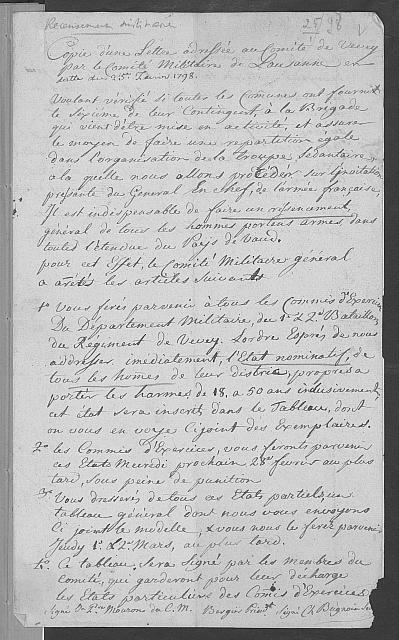 Recensement militaire
25/98 V
Copie d'une Lettre adressée au Comité de Vevey
par le Comité Militaire de Lausanne en
datte du 25e Fevrier 1798.
Voulant vérifié si toutes les Comunes ont fournit
le de leur Contingent, à la Brigade
qui vient d'être mise en activité, et assurer
le moyen de faire une repartition égale
dans l'organisation de la troupe Sédantaire,
a la quelle nous allons procéder sur l'invitation
pressante du General En chef, de l'armée française
Il est indispensable de faire un ressencement,
général de tous les hommes porteurs armes, dans
toute l'étendue du Païs de Vaud.
pour cet Effet, le Comité Militaire général
a arêtés les articles Suivants
1o Vous ferés parvenir à tous les Commis d'Exercices
Du Département Militaire, du 1er & 2e Bataillon
du Regiment de Vevey. L'ordre Exprès de nous
addresser imediatement, l'Etat nominatif, de
tous les homes de leur district, propres a
porter les harmes de 18. a 50 ans inclusivement,
cet état sera inscrit, dans le Tableau, dont
on vous en voye Cijoint des Exemplaires.
2o les Commis d'Exercices, vous feronts parvenir
ces Etats Mecredi prochain 28e fevrier au plus
tard, sous peine de punition
3o Vous dresserés de tous ces Etats partiels, un
tableau général dont nous vous envoyons
Ci joint le modelle, & vous nous le ferés parvenir
Jeudy 1er & 2e Mars, au plus tard.
4o Ce tableau, sera Signé par les membres du
Comité, qui garderont pour leur décharge
les Etats particuliers des Comis d'Exercices
Signé Mouron du C. M. Bergier Présidt Signé